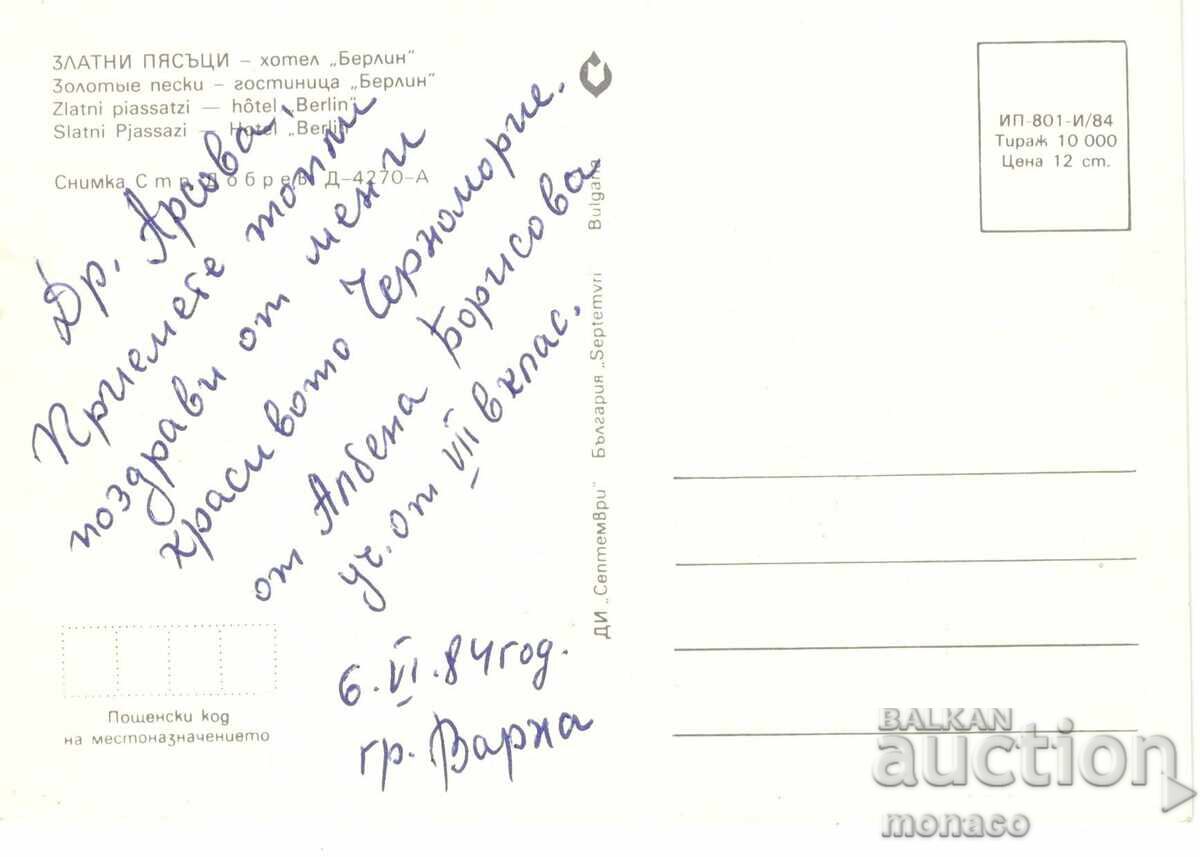 ЗЛАТНИ ПЯСЪЦИ – хотел „Берлин"
Золотые пески – гостиница „Берлин"
Zlatni piassatzi — hôtel „Berlin"
Slatni Pjassazi — Hotel „Berlin"
Снимка Стр. Добрев Д-4270-А
Др. Арсова!
Приемете топли
поздрави от мен и
красивото Черноморие.
от Албена Борисова
уч. от VII в клас.
6.VI.84 год.
гр. Варна
Пощенски код
на местоназначението
ДИ „Септември" България „Septemvri" Bulgaria
ИП-801-И/84
Тираж 10 000
Цена 12 ст.
BALKAN
auction
monaco